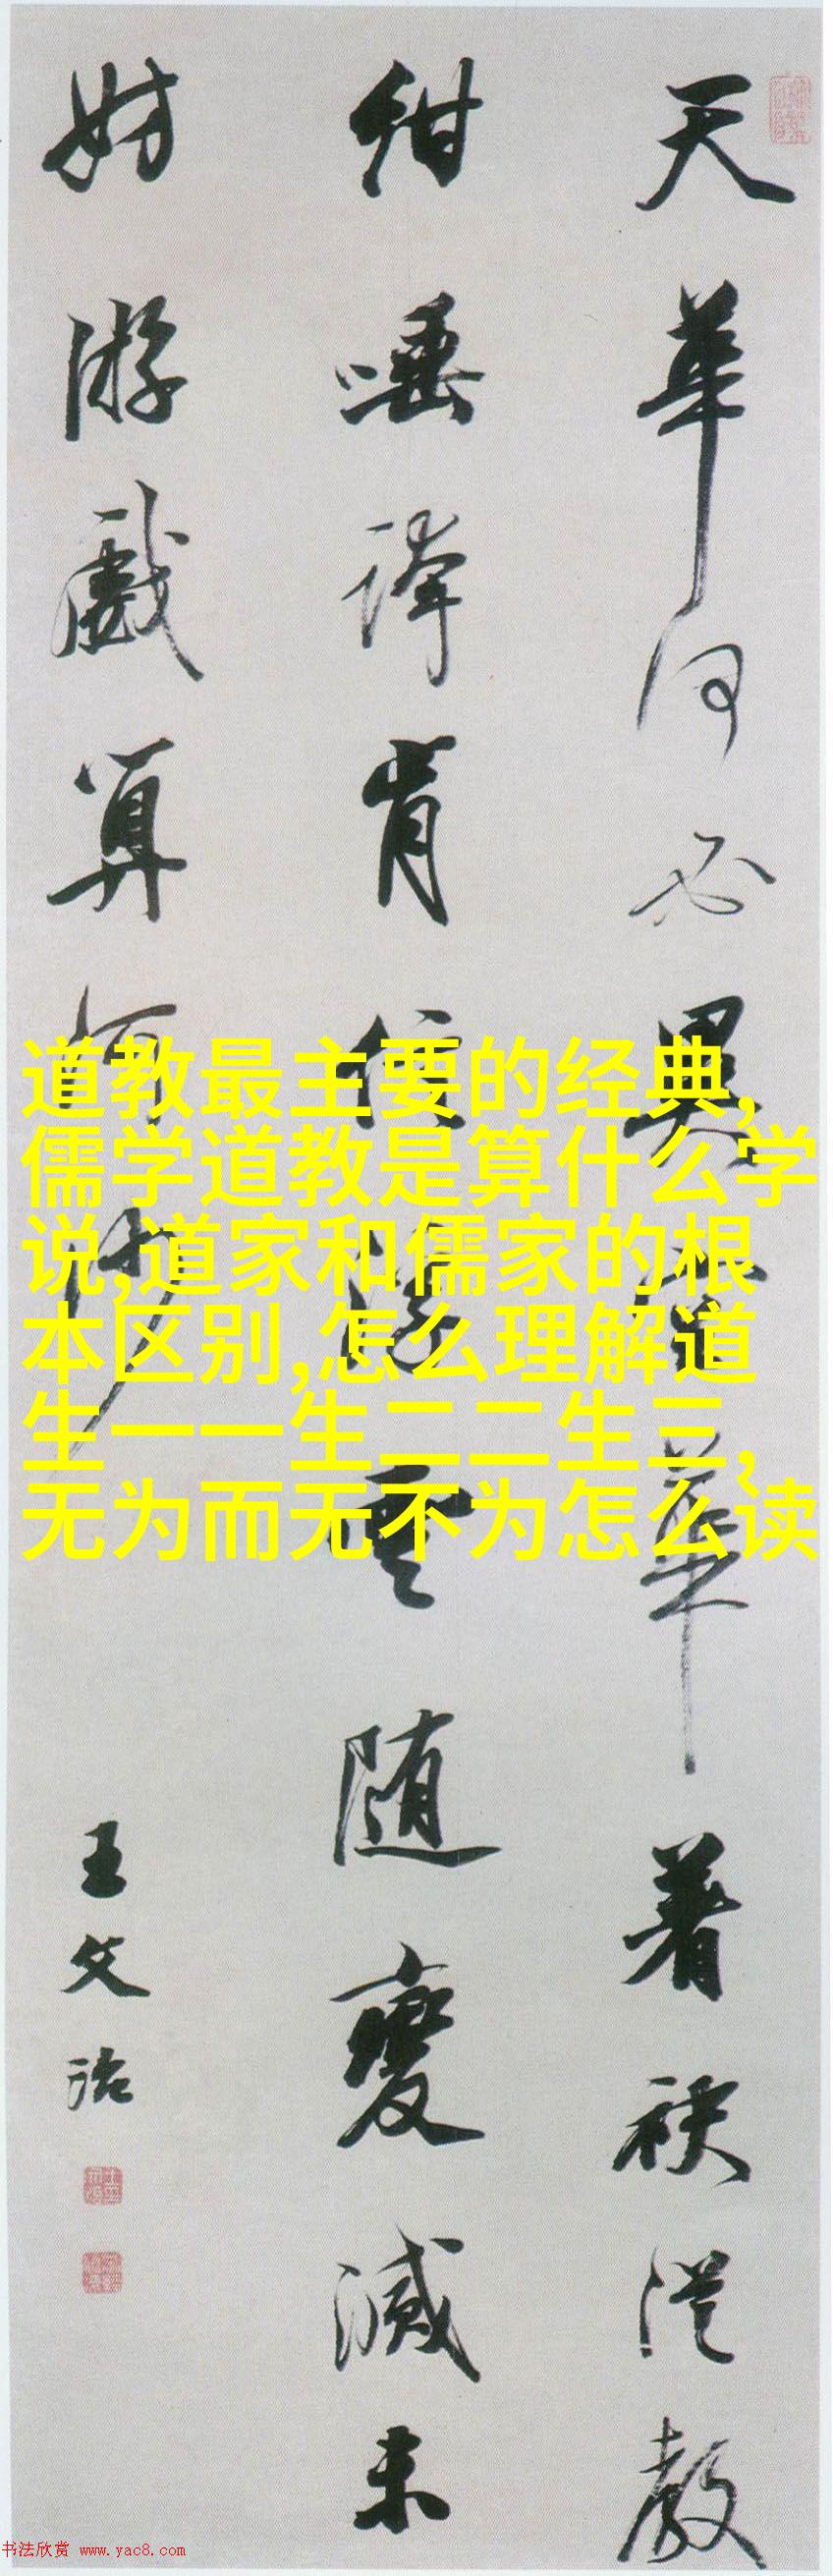 天華何必異
華著袂從教
紺唾津肯信浮雲隨變滅未
妨游戲算河沙
王文治
道教最主要的经典,
儒学道教是算什么学
说,道家和儒家的根
本区别,怎么理解道
生一一生二二生三,
无为而无不为怎么读
书法欣赏 www.yac8.com